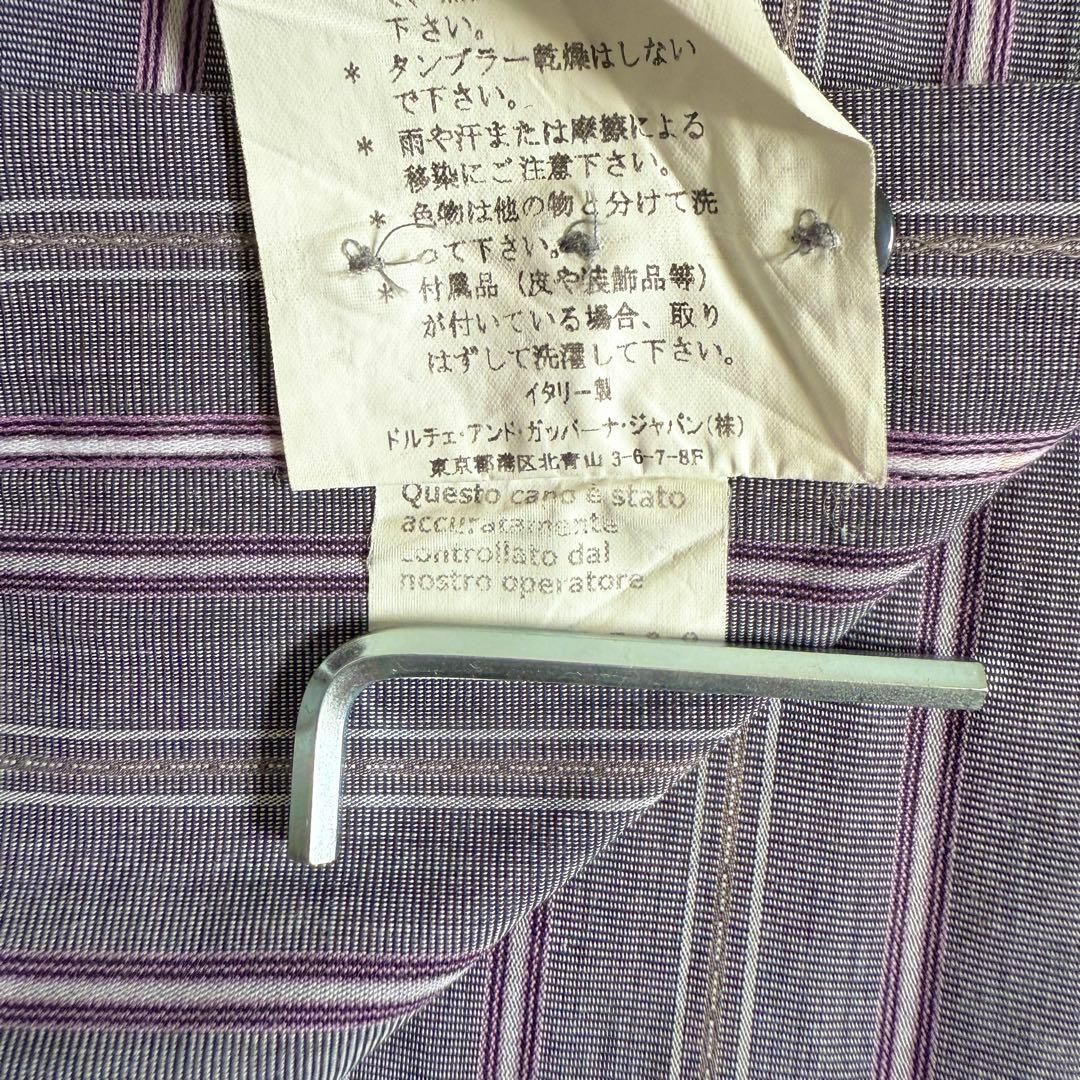 下さい。
* タンブラー乾燥はしない
で下さい。
* 雨や汗または摩擦による
移染にご注意下さい。
* 色物は他の物と分けて洗
って下さい。
* 付属品（皮や装飾品等）
が付いている場合、取り
はずして洗濯して下さい。
イタリー製
ドルチェ・アンド・ガッバーナ・ジャパン(株)
東京都港区北青山 3-6-7-8F
Questo capo è stato
accuratamente
controllato dal
nostro operatore